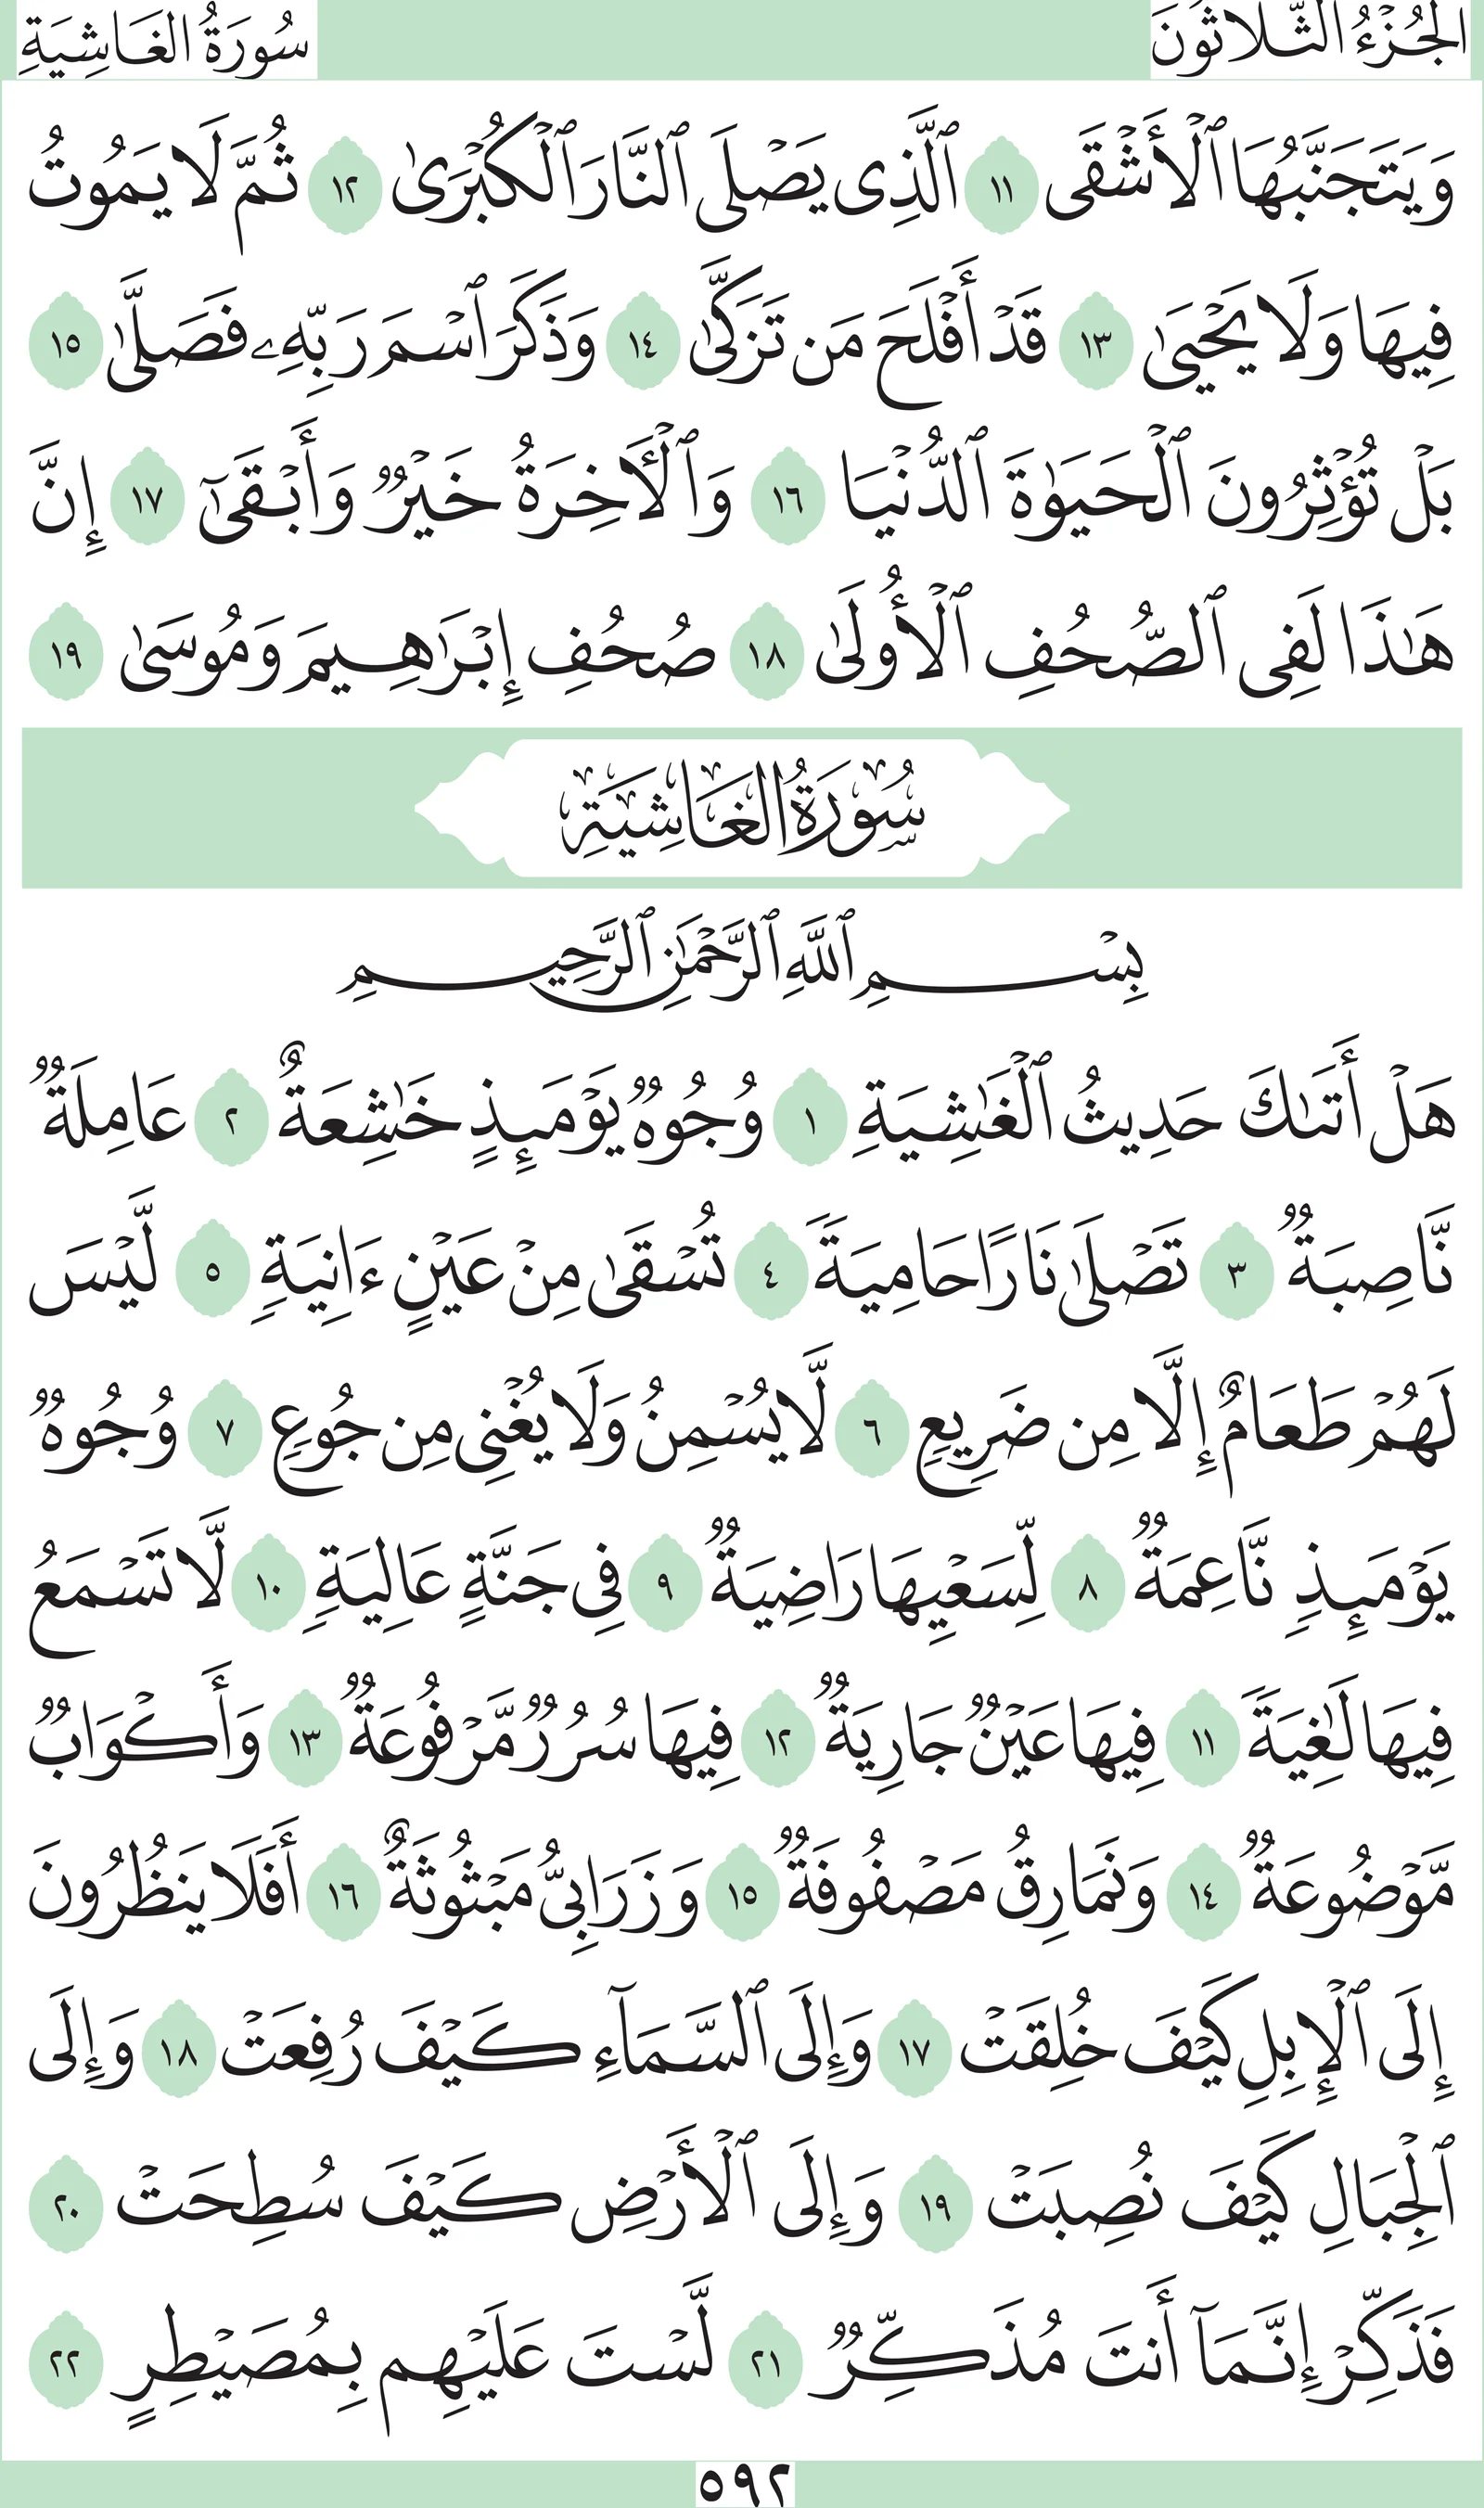 الجُزْءُ الثَّلَاثُونَ
سُورَةُ الغَاشِيَةِ
وَيَتَجَنَّبُهَا ٱلْأَشْقَى ١١ ٱلَّذِى يَصْلَى ٱلنَّارَ ٱلْكُبْرَىٰ ١٢ ثُمَّ لَا يَمُوتُ
فِيهَا وَلَا يَحْيَىٰ ١٣ قَدْ أَفْلَحَ مَن تَزَكَّىٰ ١٤ وَذَكَرَ ٱسْمَ رَبِّهِۦ فَصَلَّىٰ ١٥
بَلْ تُؤْثِرُونَ ٱلْحَيَوٰةَ ٱلدُّنْيَا ١٦ وَٱلْأَخِرَةُ خَيْرٌ وَأَبْقَىٰٓ ١٧ إِنَّ
هَٰذَا لَفِى ٱلصُّحُفِ ٱلْأُولَىٰ ١٨ صُحُفِ إِبْرَٰهِيمَ وَمُوسَىٰ ١٩
سُورَةُ الغَاشِيَةِ
بِسْمِ ٱللَّهِ ٱلرَّحْمَٰنِ ٱلرَّحِيمِ
هَلْ أَتَىٰكَ حَدِيثُ ٱلْغَٰشِيَةِ ١ وُجُوهٌ يَوْمَئِذٍ خَٰشِعَةٌ ٢ عَامِلَةٌ
نَّاصِبَةٌ ٣ تَصْلَىٰ نَارًا حَامِيَةً ٤ تُسْقَىٰ مِنْ عَيْنٍ ءَانِيَةٍ ٥ لَّيْسَ
لَهُمْ طَعَامٌ إِلَّا مِن ضَرِيعٍ ٦ لَّا يُسْمِنُ وَلَا يُغْنِى مِن جُوعٍ ٧ وُجُوهٌ
يَوْمَئِذٍ نَّاعِمَةٌ ٨ لِّسَعْيِهَا رَاضِيَةٌ ٩ فِى جَنَّةٍ عَالِيَةٍ ١٠ لَّا تَسْمَعُ
فِيهَا لَٰغِيَةً ١١ فِيهَا عَيْنٌ جَارِيَةٌ ١٢ فِيهَا سُرُرٌ مَّرْفُوعَةٌ ١٣ وَأَكْوَابٌ
مَّوْضُوعَةٌ ١٤ وَنَمَارِقُ مَصْفُوفَةٌ ١٥ وَزَرَابِىُّ مَبْثُوثَةٌ ١٦ أَفَلَا يَنظُرُونَ
إِلَى ٱلْإِبِلِ كَيْفَ خُلِقَتْ ١٧ وَإِلَى ٱلسَّمَآءِ كَيْفَ رُفِعَتْ ١٨ وَإِلَى
ٱلْجِبَالِ كَيْفَ نُصِبَتْ ١٩ وَإِلَى ٱلْأَرْضِ كَيْفَ سُطِحَتْ ٢٠
فَذَكِّرْ إِنَّمَآ أَنتَ مُذَكِّرٌ ٢١ لَّسْتَ عَلَيْهِم بِمُصَيْطِرٍ ٢٢
٥٩٢